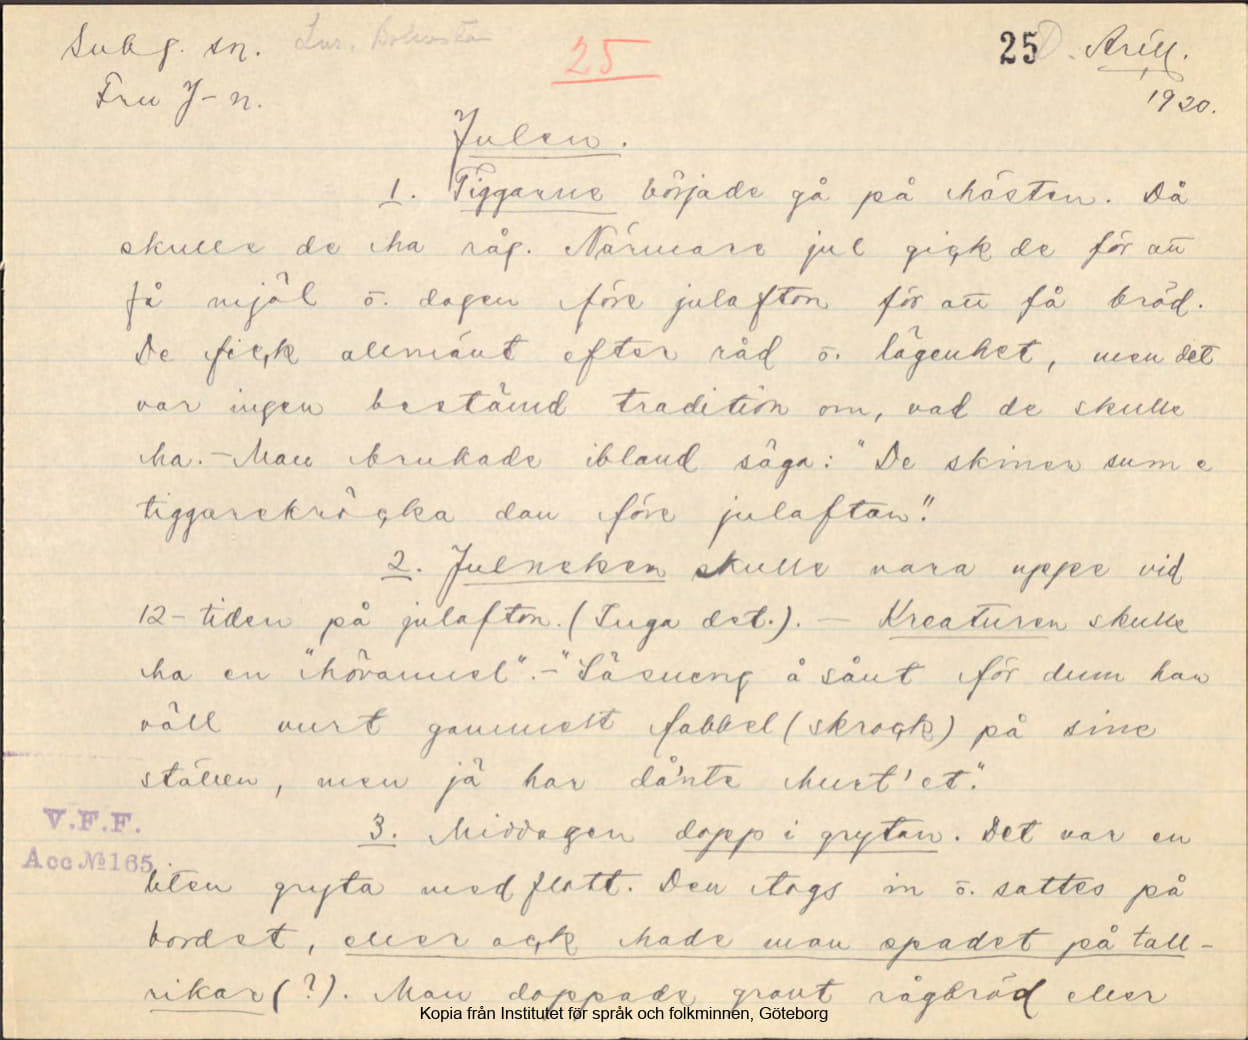 25
25 D. Arill.
Fru J-n.
1920.
Julen.
1. Tiggarne började gå på hösten. Då
skulle de ha råg. Närmare jul gick de för att
få mjöl o. dagen före julafton för att få bröd.
De fick allmänt efter råd o. lägenhet, men det
var ingen bestämd tradition om, vad de skulle
ha. - Man brukade ibland säga: "De skiner sum e
tiggarekröcka dan före julaftan".
2. Julneken skulle vara uppe vid
12-tiden på julafton. (Inga det.). - Kreaturen skulle
ha en "hövamel". - "Läsneng å sånt för dum har
väll vurt gammelt fabbel (skrock) på sine
ställen, men jä har då'nte hurt' et".
3. Middagen dopp i grytan. Det var en
liten gryta med flott. Den togs in o. sattes på
bordet, eller ock hade man spadet på tall-
rikar (?). Man doppade grovt rågbröd eller
V.F.F.
Acc №165
Kopia från Institutet för språk och folkminnen, Göteborg